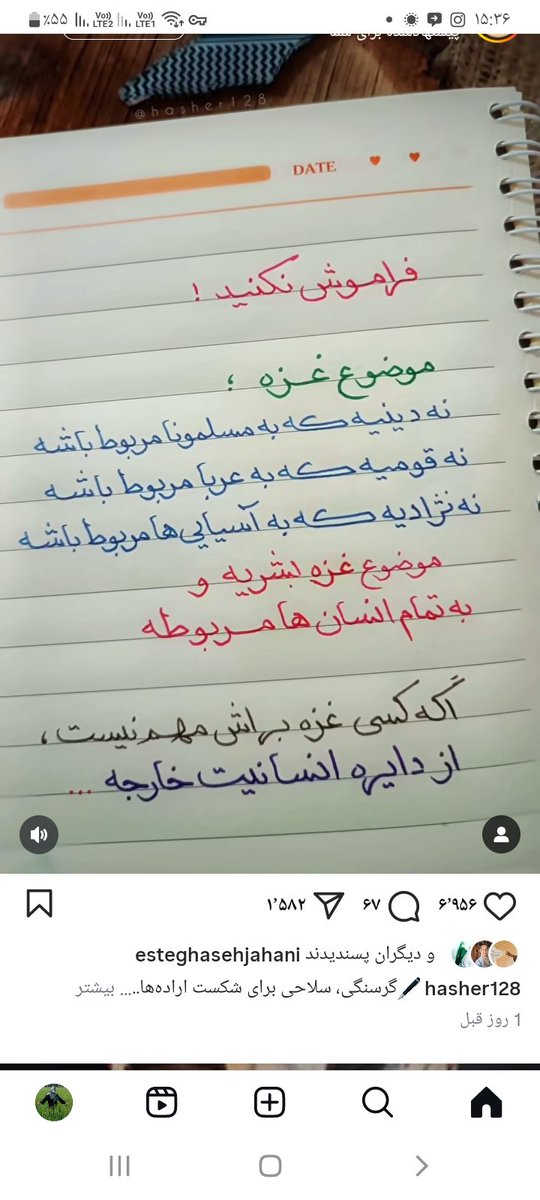 ٪۵۵ Vo)) LTE2 Vo)) LTE1 ۱۵:۳۶
پیشنهادشده برای شما
@hasher128
DATE
فراموش نکنید !
موضوع غزه ؛
نه دینیه که به مسلمونا مربوط باشه
نه قومیه که به عربا مربوط باشه
نه نژادیه که به آسیایی ها مربوط باشه
موضوع غزه بشریه و
به تمام انسان ها مربوطه
اگه کسی غزه براش مهم نیست ،
از دایره انسانیت خارجه ...
۶٬۹۵۶ ۶۷ ۱٬۵۸۲
esteghasehjahani و دیگران پسندیدند
hasher128 🖊گرسنگی، سلاحی برای شکست اراده‌ها..... بیشتر
1 روز قبل